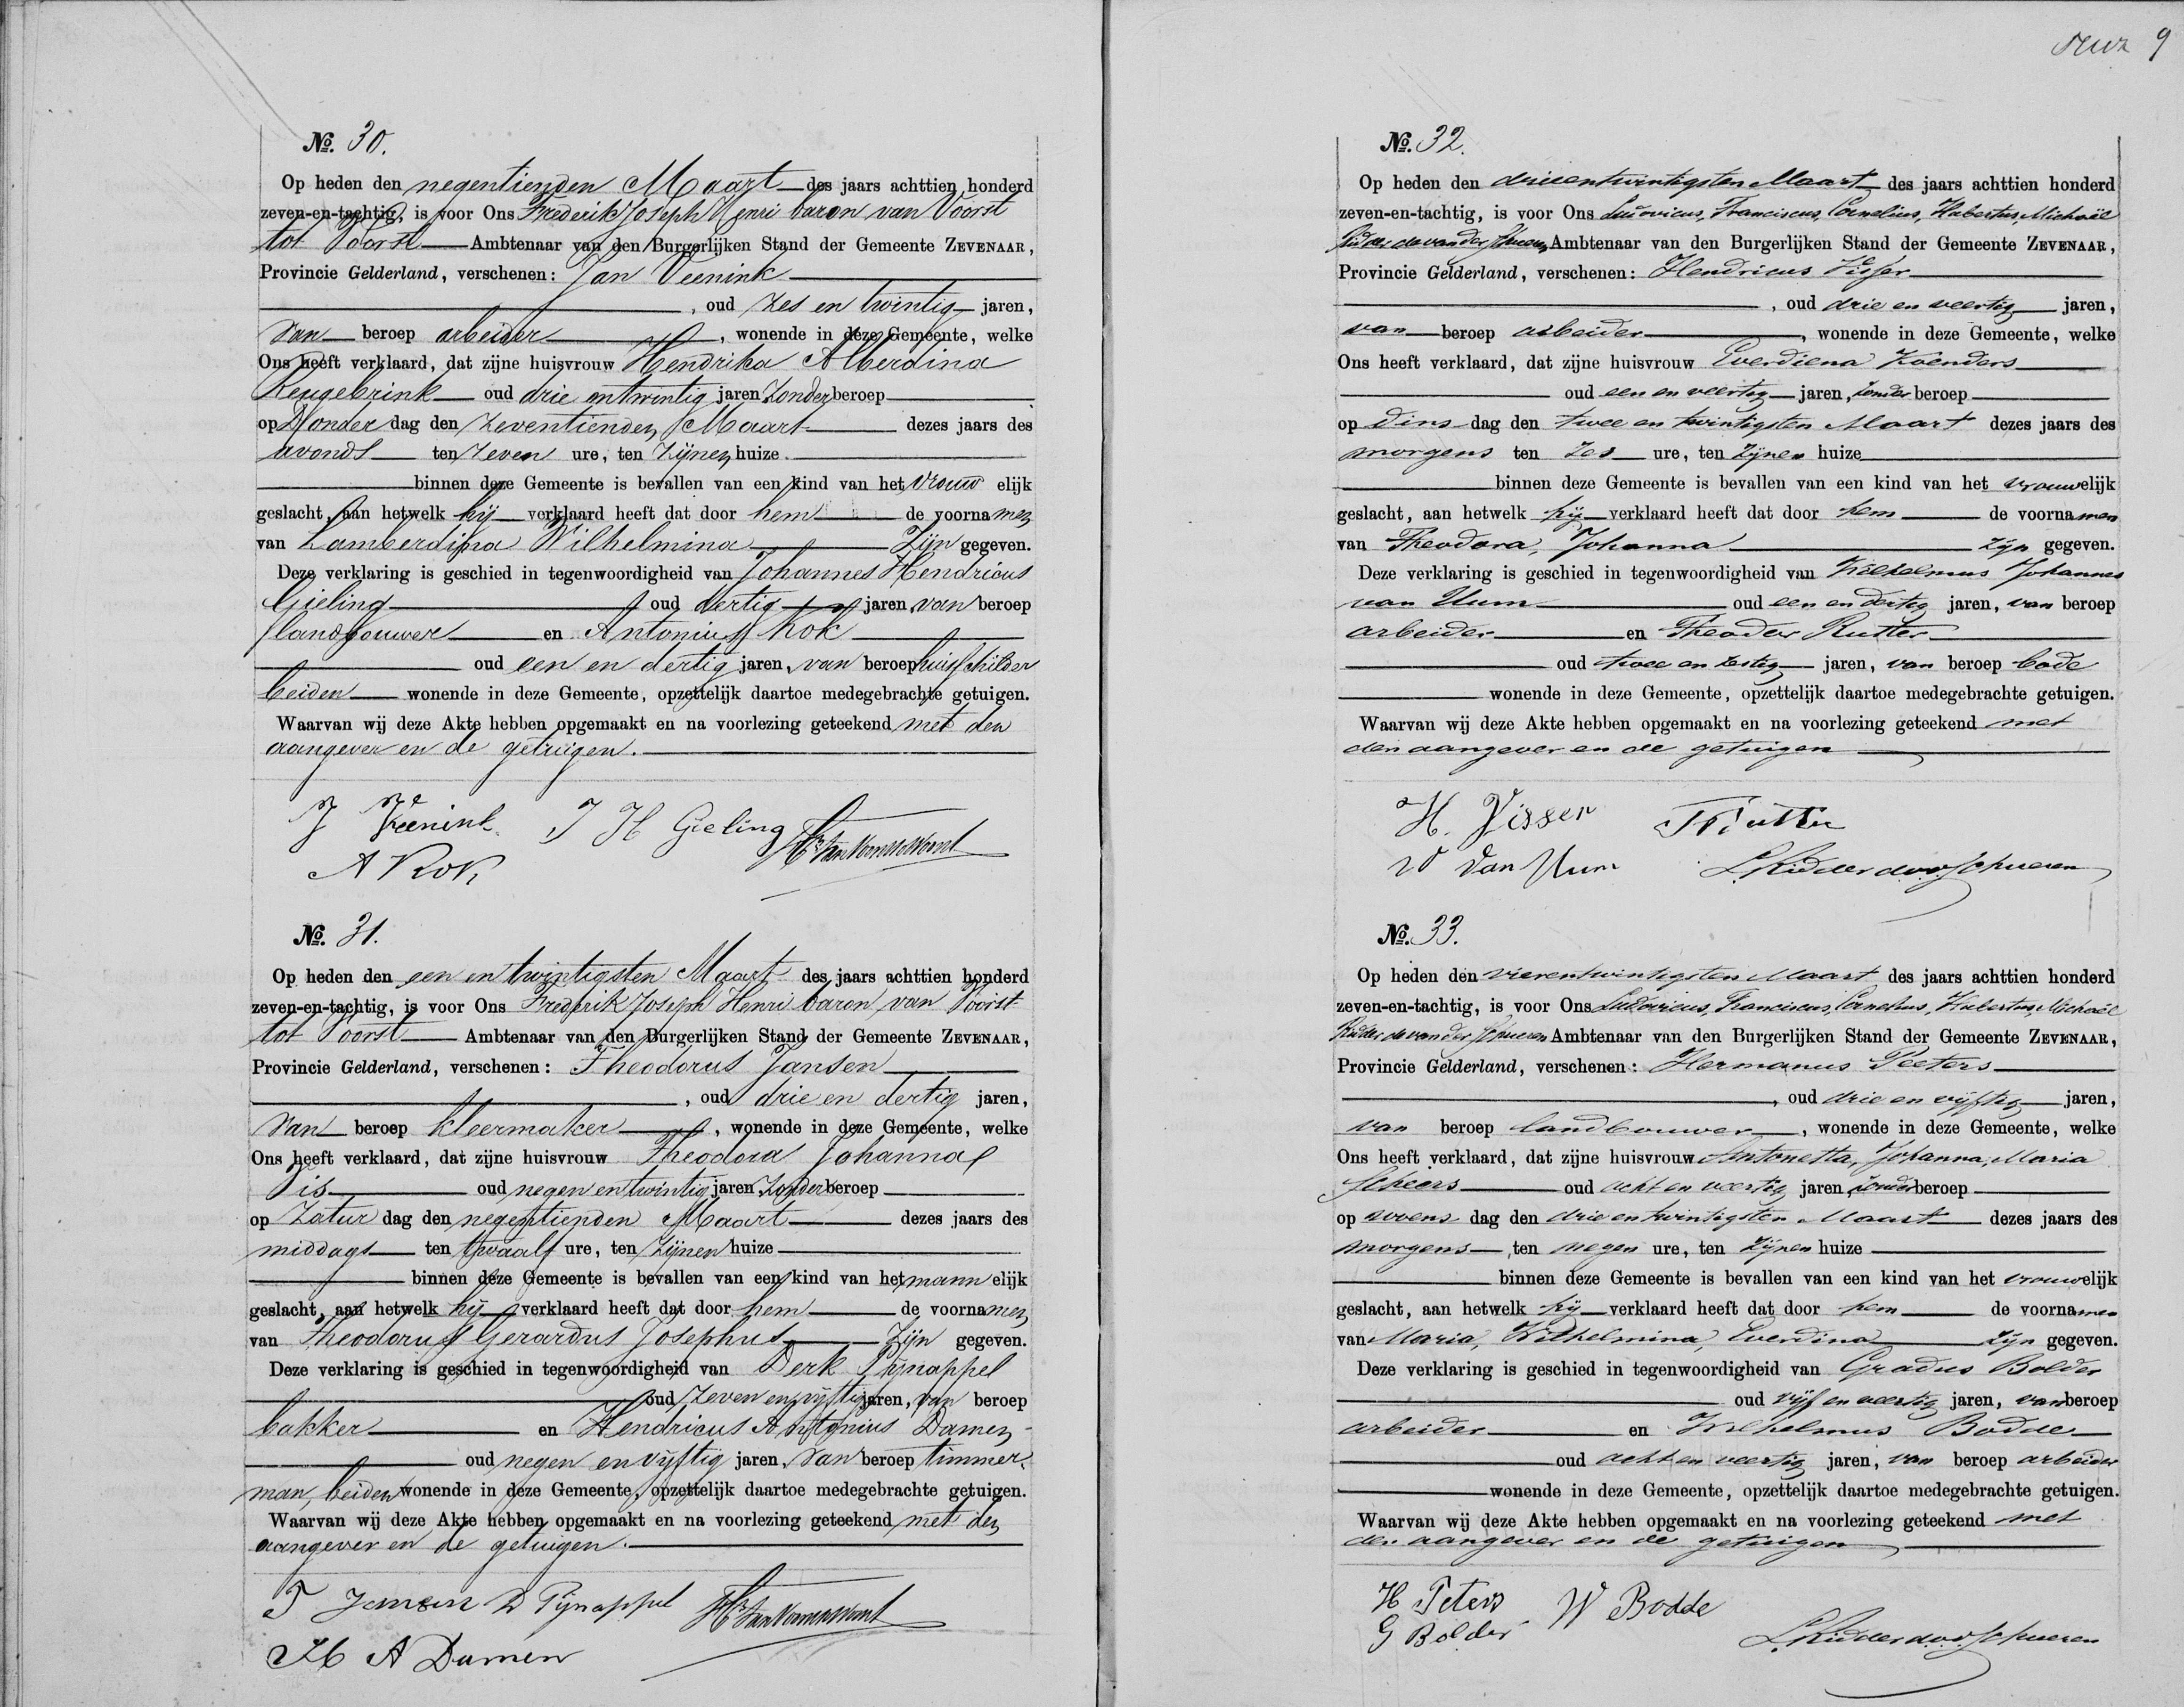 No. 30.
Op heden den negentienden Maart des jaars achttien honderd
zeven-en-tachtig, is voor Ons Frederik Joseph Henri baron van Voorst
tot Voorst Ambtenaar van den Burgerlijken Stand der Gemeente ZEVENAAR,
Provincie Gelderland, verschenen: Jan Veenink
, oud zes en twintig jaren,
van beroep arbeider, wonende in deze Gemeente, welke
Ons heeft verklaard, dat zijne huisvrouw Hendrika Alberdina
oud drie en twintig jaren zonder beroep
op Donder dag den zeventienden Maart dezes jaars des
avonds ten zeven ure, ten zijnen huize
binnen deze Gemeente is bevallen van een kind van het vrouw elijk
geslacht, aan hetwelk hij verklaard heeft dat door hem de voornamen
van Lamberdina Wilhelmina zijn gegeven.
Deze verklaring is geschied in tegenwoordigheid van Johannes Hendricus
Gieling oud dertig jaren, van beroep
landbouwer en Antonius Kok
oud een en dertig jaren, van beroep huisschilder
beiden wonende in deze Gemeente, opzettelijk daartoe medegebrachte getuigen.
Waarvan wij deze Akte hebben opgemaakt en na voorlezing geteekend met den
aangever en de getuigen.
J Veenink J H Gieling
A Kok
No. 31.
Op heden den een en twintigsten Maart des jaars achttien honderd
zeven-en-tachtig, is voor Ons Frederik Joseph Henri baron van Voorst
tot Voorst Ambtenaar van den Burgerlijken Stand der Gemeente ZEVENAAR,
Provincie Gelderland, verschenen: Theodorus Jansen
, oud drie en dertig jaren,
van beroep kleermaker, wonende in deze Gemeente, welke
Ons heeft verklaard, dat zijne huisvrouw Theodora Johanna
oud negen en twintig jaren zonder beroep
op Zatur dag den negentienden Maart dezes jaars des
middags ten twaalf ure, ten zijnen huize
binnen deze Gemeente is bevallen van een kind van het mann elijk
geslacht, aan hetwelk hij verklaard heeft dat door hem de voornamen
van Theodorus Gerardus Josephus zijn gegeven.
Deze verklaring is geschied in tegenwoordigheid van Derk Pijnappel
oud zeven en vijftig jaren, van beroep
bakker en Hendricus Antonius Damen
oud negen en vijftig jaren, van beroep timmer-
man, beiden wonende in deze Gemeente, opzettelijk daartoe medegebrachte getuigen.
Waarvan wij deze Akte hebben opgemaakt en na voorlezing geteekend met den
aangever en de getuigen.
T Jansen D Pijnappel
H A Damen
9
No. 32.
Op heden den drieentwintigsten Maart des jaars achttien honderd
zeven-en-tachtig, is voor Ons Ludovicus, Franciscus, Cornelius, Hubertus, Michaël
Ridder de van der Schueren Ambtenaar van den Burgerlijken Stand der Gemeente ZEVENAAR,
Provincie Gelderland, verschenen: Hendricus Visser
, oud drie en veertig jaren,
van beroep arbeider, wonende in deze Gemeente, welke
Ons heeft verklaard, dat zijne huisvrouw Everdiena Koenders
oud een en veertig jaren, zonder beroep
op Dins dag den twee en twintigsten Maart dezes jaars des
morgens ten zes ure, ten zijnen huize
binnen deze Gemeente is bevallen van een kind van het vrouwelijk
geslacht, aan hetwelk hij verklaard heeft dat door hem de voornamen
van Theodora, Johanna zijn gegeven.
Deze verklaring is geschied in tegenwoordigheid van Wilhelmus Johannes
van Uum oud een en dertig jaren, van beroep
arbeider en Theodor Rutter
oud twee en zestig jaren, van beroep bode
wonende in deze Gemeente, opzettelijk daartoe medegebrachte getuigen.
Waarvan wij deze Akte hebben opgemaakt en na voorlezing geteekend met
den aangever en de getuigen
H. Visser T Rutter
W van Uum L Ridder dvdSchueren
No. 33.
Op heden den vierentwintigsten Maart des jaars achttien honderd
zeven-en-tachtig, is voor Ons Ludovicus, Franciscus, Cornelius, Hubertus, Michaël
Ridder de van der Schueren Ambtenaar van den Burgerlijken Stand der Gemeente ZEVENAAR,
Provincie Gelderland, verschenen: Hermanus Peeters
, oud drie en vijftig jaren,
van beroep landbouwer, wonende in deze Gemeente, welke
Ons heeft verklaard, dat zijne huisvrouw Antonetta, Johanna, Maria
Scheers oud acht en veertig jaren zonder beroep
op woens dag den drie en twintigsten Maart dezes jaars des
morgens ten negen ure, ten zijnen huize
binnen deze Gemeente is bevallen van een kind van het vrouwelijk
geslacht, aan hetwelk hij verklaard heeft dat door hem de voornamen
van Maria, Wilhelmina, Everdina zijn gegeven.
Deze verklaring is geschied in tegenwoordigheid van Gradus Bolder
oud vijf en veertig jaren, van beroep
arbeider en Wilhelmus Bodde
oud acht en veertig jaren, van beroep arbeider
wonende in deze Gemeente, opzettelijk daartoe medegebrachte getuigen.
Waarvan wij deze Akte hebben opgemaakt en na voorlezing geteekend met
den aangever en de getuigen
H Peters W Bodde
G Bolder L Ridder dvdSchueren